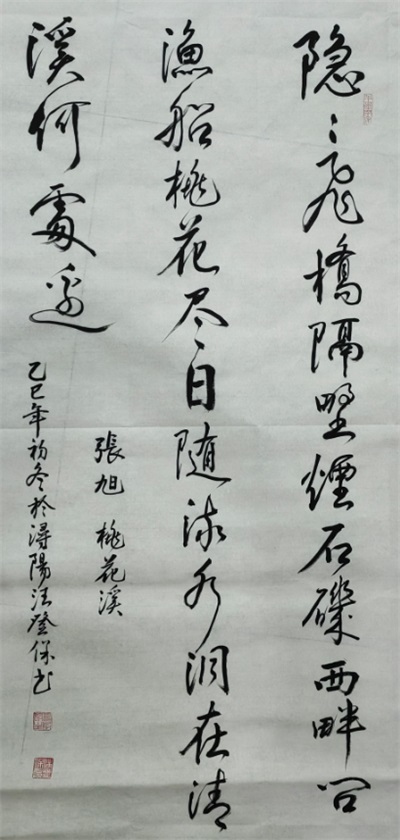 隐々飛橋隔野煙石磯西畔问
漁船桃花尽日随流水洞在清
溪何處邊
張旭 桃花溪
乙巳年初冬於潯陽汪登保书